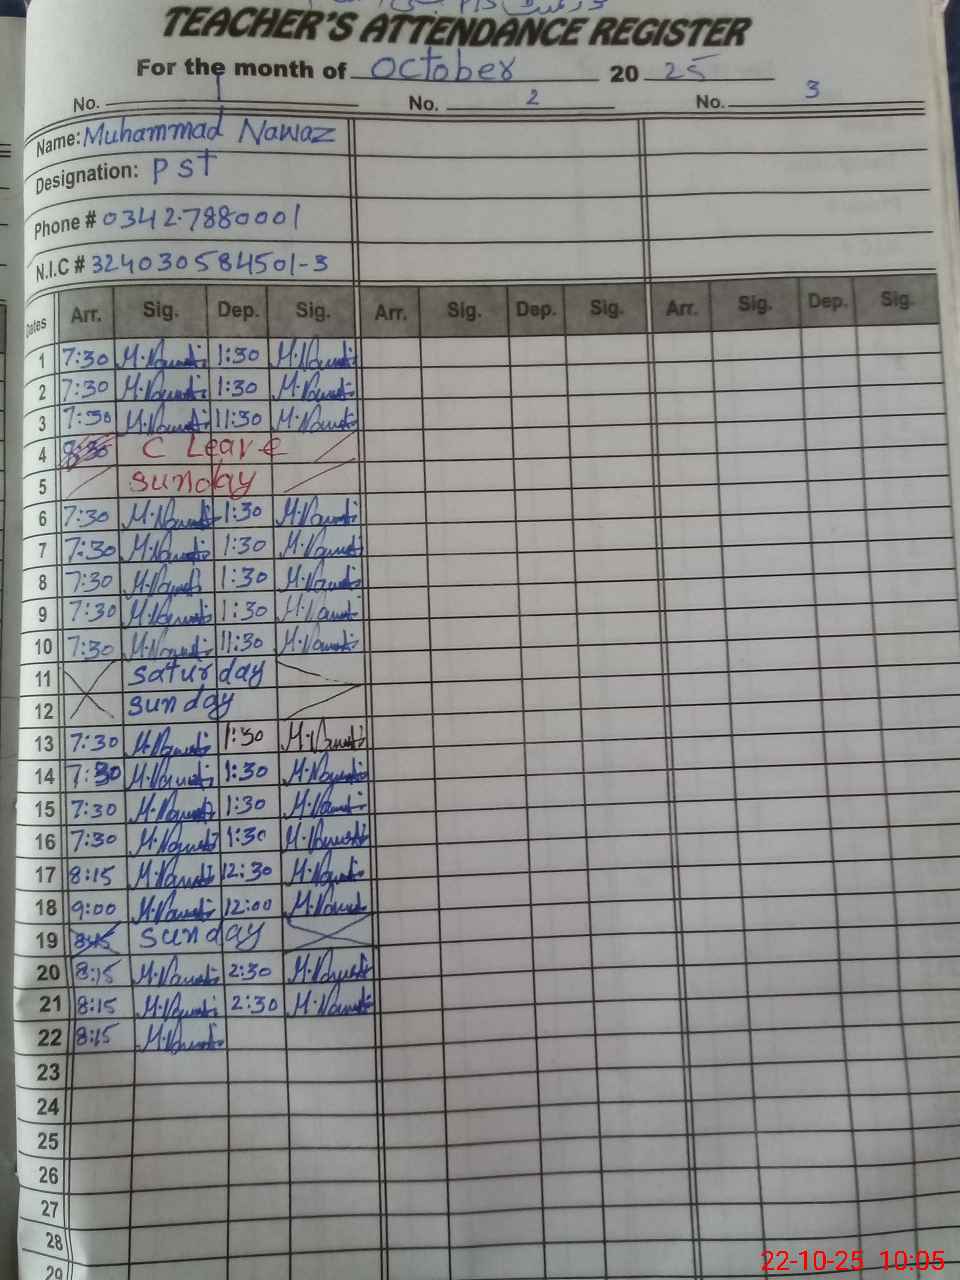 TEACHER'S ATTENDANCE REGISTER
For the month of October 2025
No. 1 No. 2 No. 3
Name: Muhammad Nawaz
Designation: PST
Phone # 0342.7880001
N.I.C # 324030584501-3
Dates Arr. Sig. Dep. Sig. Arr. Sig. Dep. Sig. Arr. Sig. Dep. Sig.
1 7:30 M.Nawaz 1:30 M.Nawaz
2 7:30 M.Nawaz 1:30 M.Nawaz
3 7:30 M.Nawaz 11:30 M.Nawaz
4 8:30 C Leave
5 Sunday
6 7:30 M.Nawaz 1:30 M.Nawaz
7 7:30 M.Nawaz 1:30 M.Nawaz
8 7:30 M.Nawaz 1:30 M.Nawaz
9 7:30 M.Nawaz 1:30 M.Nawaz
10 7:30 M.Nawaz 11:30 M.Nawaz
11 Saturday
12 Sunday
13 7:30 M.Nawaz 1:30 M.Nawaz
14 7:30 M.Nawaz 1:30 M.Nawaz
15 7:30 M.Nawaz 1:30 M.Nawaz
16 7:30 M.Nawaz 1:30 M.Nawaz
17 8:15 M.Nawaz 12:30 M.Nawaz
18 9:00 M.Nawaz 12:00 M.Nawaz
19 8:45 Sunday
20 8:15 M.Nawaz 2:30 M.Nawaz
21 8:15 M.Nawaz 2:30 M.Nawaz
22 8:15 M.Nawaz
23
24
25
26
27
28
29
22-10-25 10:05